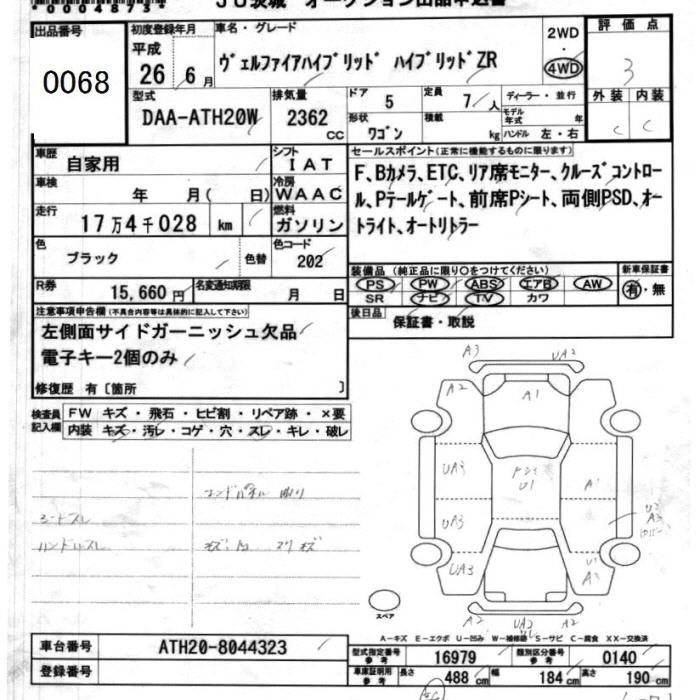 *0048734*
JU茨城 オークション出品申込書
出品番号
0068
初度登録年月
平成
26年 6月
車名・グレード
ヴェルファイアハイブリッド ハイブリッドZR
2WD
・
4WD
評価点
3
外装 内装
C C
型式
DAA-ATH20W
排気量
2362
CC
ドア
5
定員
7人
ディーラー・並行
形状
ワゴン
積載
kg
モデル年式 年
ハンドル 左・右
車歴
自家用
シフト
IAT
車検
年 月( 日)
冷房
WAAC
走行
17万4千028 km
燃料
ガソリン
色
ブラック
色替
色コード
202
R券
15,660円
名変通知期限
月 日
セールスポイント(正常に機能するものに限ります)
F、Bカメラ、ETC、リア席モニター、クルーズコントロー
ル、Pテールゲート、前席Pシート、両側PSD、オー
トライト、オートリトラー
装備品(純正品に限り○をつけてください)
PS PW ABS エアB AW
SR ナビ TV カワ
新車保証書
有・無
後日品
保証書・取説
注意事項申告欄(不具合内容等は具体的に記入して下さい)
左側面サイドガーニッシュ欠品
電子キー2個のみ
修復歴 有〔箇所 〕
検査員
記入欄
FW キズ・飛石・ヒビ割・リペア跡・×要
内装 キズ・汚レ・コゲ・穴・スレ・キレ・破レ
シートスレ
ハンドルスレ
A3 UA2
A2 A1 A2
UA3 A1
UA3
UA3 A1
A2 UA2 A2
スペア
A-キズ E-エクボ U-凹み W-補修跡 S-サビ C-腐食 XX-交換済
車台番号
ATH20-8044323
登録番号
型式指定番号
参考
16979
類別区分番号
参考
0140
車庫証明用
参考
長さ 488cm 幅 184cm 高さ 190cm